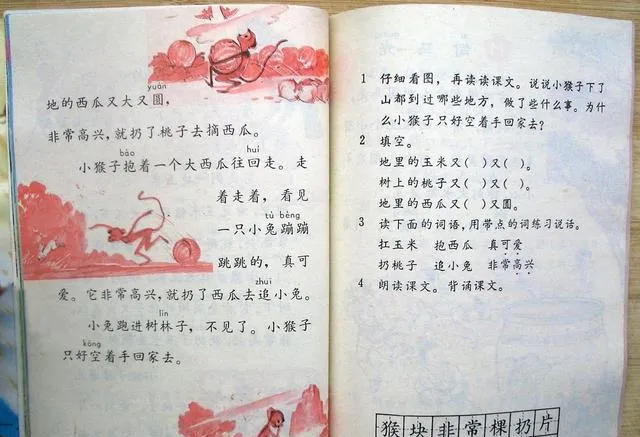 yuán
地的西瓜又大又圆，
非常高兴，就扔了桃子去摘西瓜。
bào huí
小猴子抱着一个大西瓜往回走。走
着走着，看见
tù bèng
一只小兔蹦蹦
跳跳的，真可
zhuī
爱。它非常高兴，就扔了西瓜去追小兔。
lín
小兔跑进树林子，不见了。小猴子
kōng
只好空着手回家去。
1 仔细看图，再读读课文。说说小猴子下了
山都到过哪些地方，做了些什么事。为什
么小猴子只好空着手回家去？
2 填空。
地里的玉米又( )又( )。
树上的桃子又( )又( )。
地里的西瓜又( )又圆。
3 读下面的词语，用带点的词练习说话。
扛玉米 抱西瓜 真可爱
扔桃子 追小兔 非常高兴
4 朗读课文。背诵课文。
猴块非常棵扔片